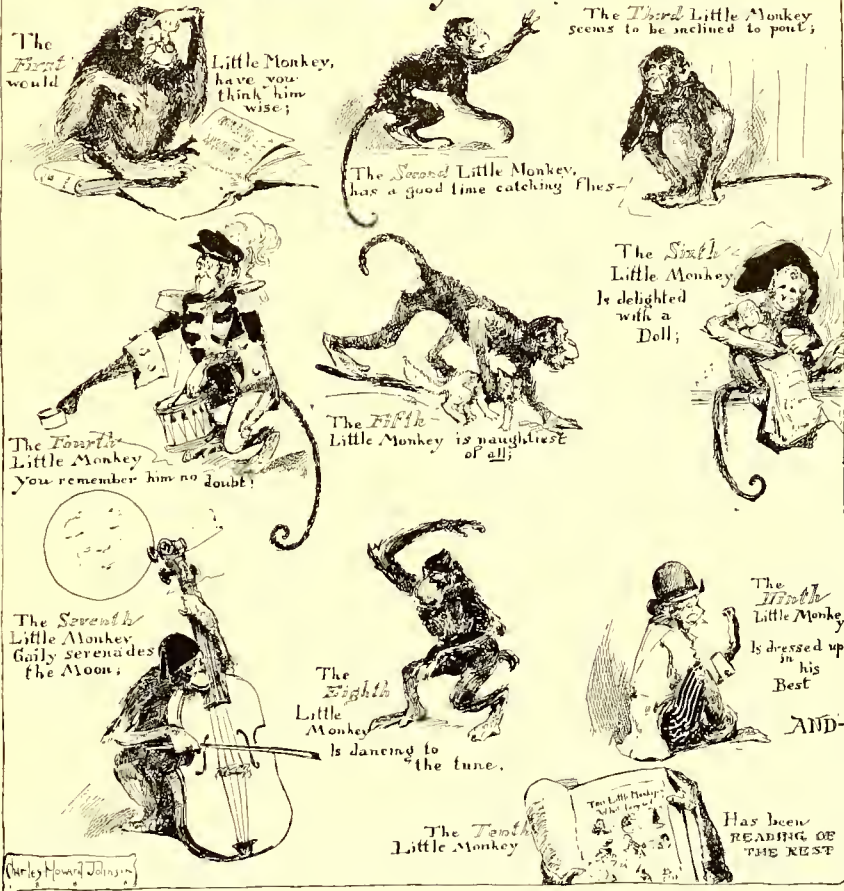 The
First
would
Little Monkey,
have you
think him
wise;
The Second Little Monkey,
has a good time catching flies-
The Third Little Monkey
seems to be inclined to pout;
The Fourth
Little Monkey
you remember him no doubt!
The Fifth
Little Monkey is naughtiest
of all;
The Sixth
Little Monkey
Is delighted
with a
Doll;
The Seventh
Little Monkey
Gaily serenades
the Moon;
The
Eighth
Little
Monkey
Is dancing to
the tune.
The
Ninth
Little Monkey
Is dressed up
in
his
Best
AND-
The Tenth
Little Monkey
Ten Little Monkeys
Has been
READING OF
THE REST
Charles Howard Johnson